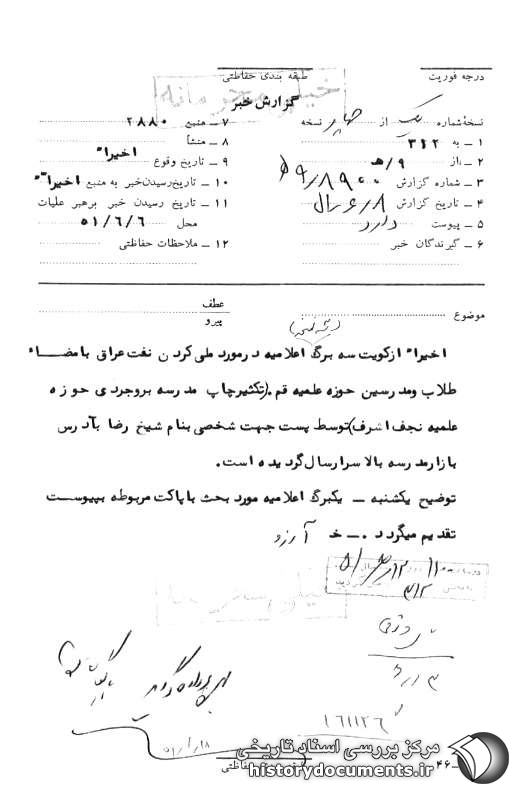 درجه فوریت
طبقه بندی حفاظتی
خیلی محرمانه
گزارش خبر
نسخه شماره یک از چهار نسخه
۱ ـ به ۳۱۲
۲ ـ از ۹/هـ
۳ ـ شماره گزارش
۴ ـ تاریخ گزارش
۵ ـ پیوست دارد
۶ ـ گیرندگان خبر
۷ ـ منبع ۲۸۸۰
۸ ـ منشأ
۹ ـ تاریخ وقوع اخیراً
۱۰ ـ تاریخ رسیدن خبر به منبع اخیراً
۱۱ ـ تاریخ رسیدن خبر برهبر عملیات
محل ۵۱/۶/۶
۱۲ ـ ملاحظات حفاظتی
موضوع
عطف
پیرو
اخیراً ازکویت سه برگ اعلامیه درمورد ملی کردن نفت عراق بامضاء
طلاب ومدرسین حوزه علمیه قم.(تکثیرچاپ مدرسه بروجردی حوزه
علمیه نجف اشرف)توسط پست جهت شخصی بنام شیخ رضا بآدرس
بازارمدرسه بالاسرارسال گردیده است.
توضیح یکشنبه ـ یکبرگ اعلامیه مورد بحث باپاکت مربوطه بپیوست
تقدیم میگردد.ـ خ آرزو
۳۱۲
۱۶۱۱۲۶
مرکز بررسی اسناد تاریخی
historydocuments.ir